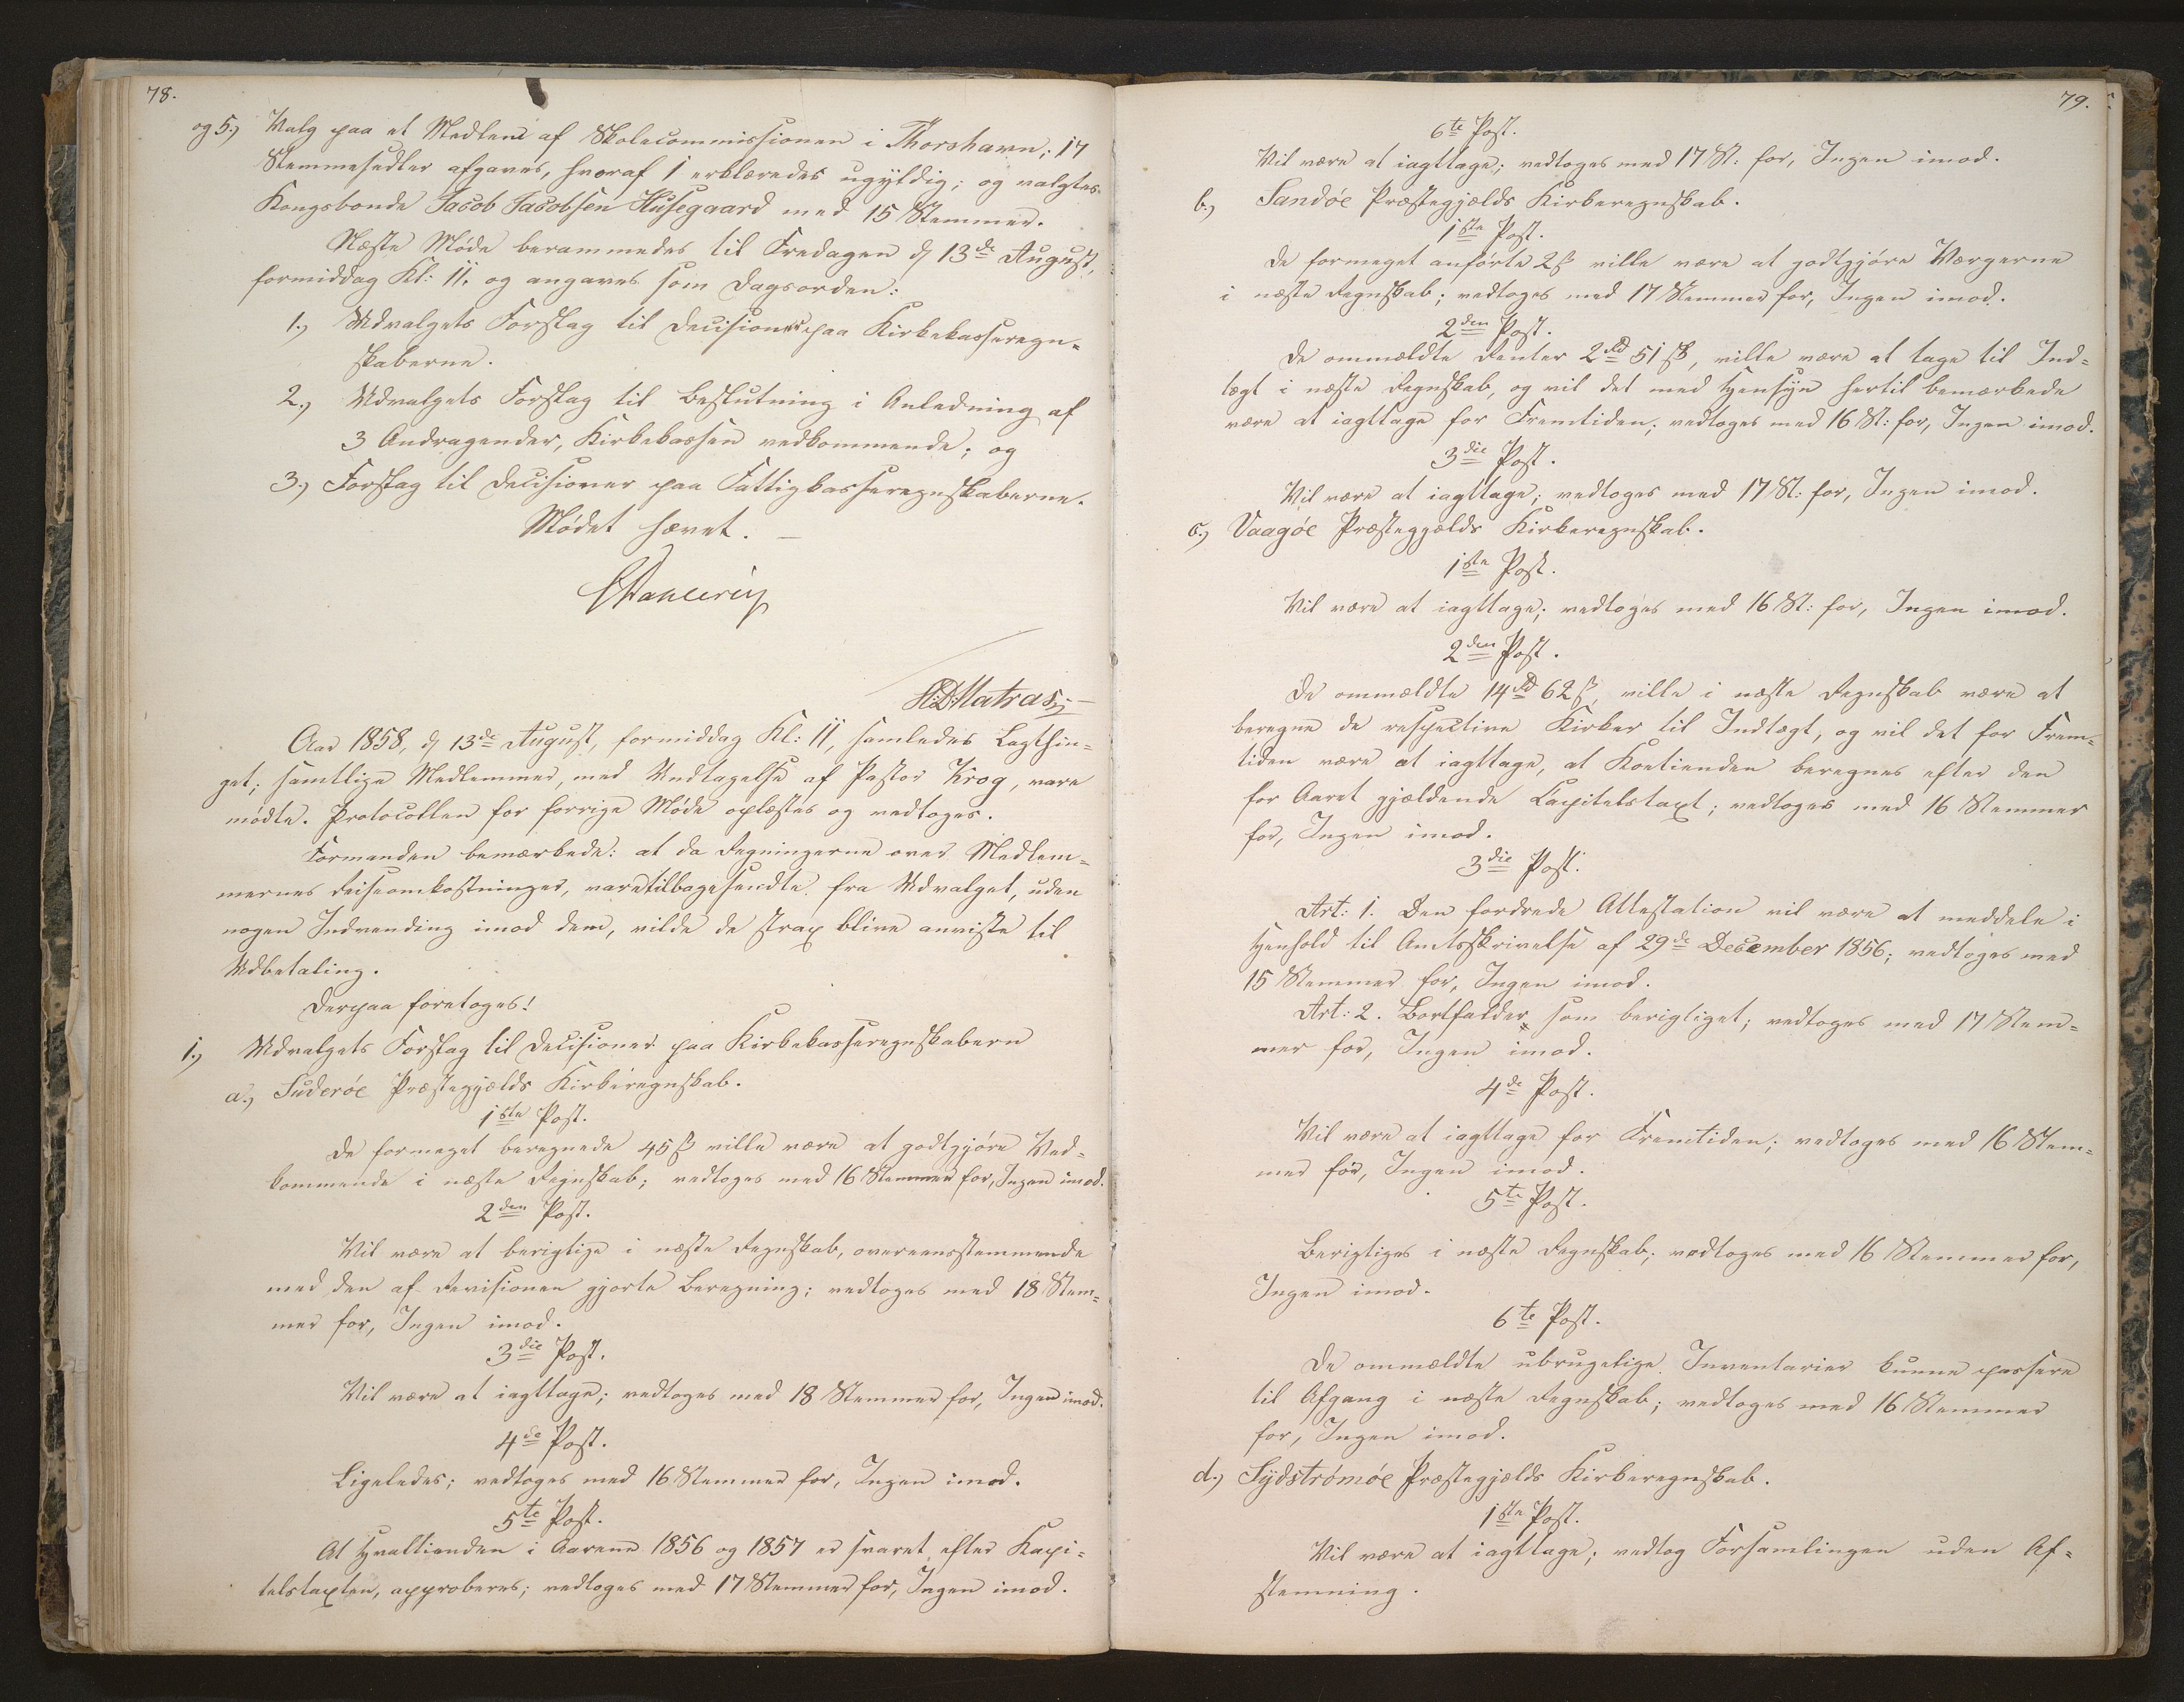 78.
og 5.) Valg paa et Medlem af Skolecommissionen i Thorshavn; 17
Stemmesedler afgaves, hvoraf 1 erklæredes ugyldig; og valgtes
Kongsbonde Jacob Jacobsen Husegaard med 15 Stemmer.
Næste Møde berammedes til Fredagen d. 13de August,
formiddag Kl: 11. og angaves som Dagsorden:
1.) Udvalgets Forslag til Decisioner paa Kirkekasseregn=
skaberne.
2.) Udvalgets Forslag til Beslutning i Anledning af
3 Andragender, Kirkekassen vedkommende; og
3.) Forslag til Decisioner paa Fattigkasseregnskaberne.
Mødet hævet. —
CDahlerup
HDMatras
Aar 1858, d. 13de August, formiddag Kl: 11, samledes Lagthin=
get; samtlige Medlemmer, med Undtagelse af Pastor Krog, vare
mødte. Protocollen for forrige Møde oplæstes og vedtoges.
Formanden bemærkede: at da Regningerne over Medlem=
mernes Reiseomkostninger, vare tilbagesendte fra Udvalget, uden
nogen Indvending imod dem, vilde de strax blive anviste til
Udbetaling.
Derpaa foretoges!
1.) Udvalgets Forslag til Decisioner paa Kirkekasseregnskabern
a.) Suderøe Præstegjælds Kirkeregnskab.
1ste Post.
De formeget beregnede 45 ß ville være at godtgjøre Ved=
kommende i næste Regnskab; vedtoges med 16 Stemmer for, Ingen imod.
2den Post.
Vil være at berigtige i næste Regnskab, overeensstemmende
med den af Revisionen gjorte Beregning; vedtoges med 18 Stem=
mer for, Ingen imod.
3die Post.
Vil være at iagttage; vedtoges med 18 Stemmer for, Ingen imod.
4de Post.
Ligeledes; vedtoges med 16 Stemmer for, Ingen imod.
5te Post.
At Hvaltienden i Aarene 1856 og 1857 er svaret efter Kapi=
telstaxten, approberes; vedtoges med 17 Stemmer for, Ingen imod.
79.
6te Post.
Vil være at iagttage; vedtoges med 17 St: for, Ingen imod.
b.) Sandøe Præstegjælds Kirkeregnskab.
1ste Post.
De formeget anførte 2 ß ville være at godtgjøre Værgerne
i næste Regnskab; vedtoges med 17 Stemmer for, Ingen imod.
2den Post.
De ommældte Renter 2 Rd 51 ß, ville være at tage til Ind=
tægt i næste Regnskab, og vil det med Hensyn hertil bemærkede
være at iagttage for Fremtiden; vedtoges med 16 St: for, Ingen imod.
3die Post.
Vil være at iagttage; vedtoges med 17 St: for, Ingen imod.
c.) Vaagøe Præstegjælds Kirkeregnskab.
1ste Post.
Vil være at iagttage; vedtoges med 16 St: for, Ingen imod.
2den Post.
De ommældte 14 Rd 62 ß, ville i næste Regnskab være at
beregne de respective Kirker til Indtægt, og vil det for Frem=
tiden være at iagttage, at Kotienden beregnes efter den
for Aaret gjældende Capitelstaxt; vedtoges med 16 Stemmer
for, Ingen imod.
3die Post.
Art: 1. Den fordrede Attestation vil være at meddele i
Henhold til Amtsskrivelse af 29de December 1856; vedtoges med
15 Stemmer for, Ingen imod.
Art: 2. Bortfalder som berigtiget; vedtoges med 17 Stem=
mer for, Ingen imod.
4de Post.
Vil være at iagttage for Fremtiden; vedtoges med 16 Stem=
mer for, Ingen imod.
5te Post.
Berigtiges i næste Regnskab; vedtoges med 16 Stemmer for,
Ingen imod.
6te Post.
De ommældte ubrugelige Inventarier kunne passere
til Afgang i næste Regnskab; vedtoges med 16 Stemmer
for, Ingen imod.
d.) Sydstrømøe Præstegjælds Kirkeregnskab.
1ste Post.
Vil være at iagttage; vedtog Forsamlingen uden Af=
stemning.